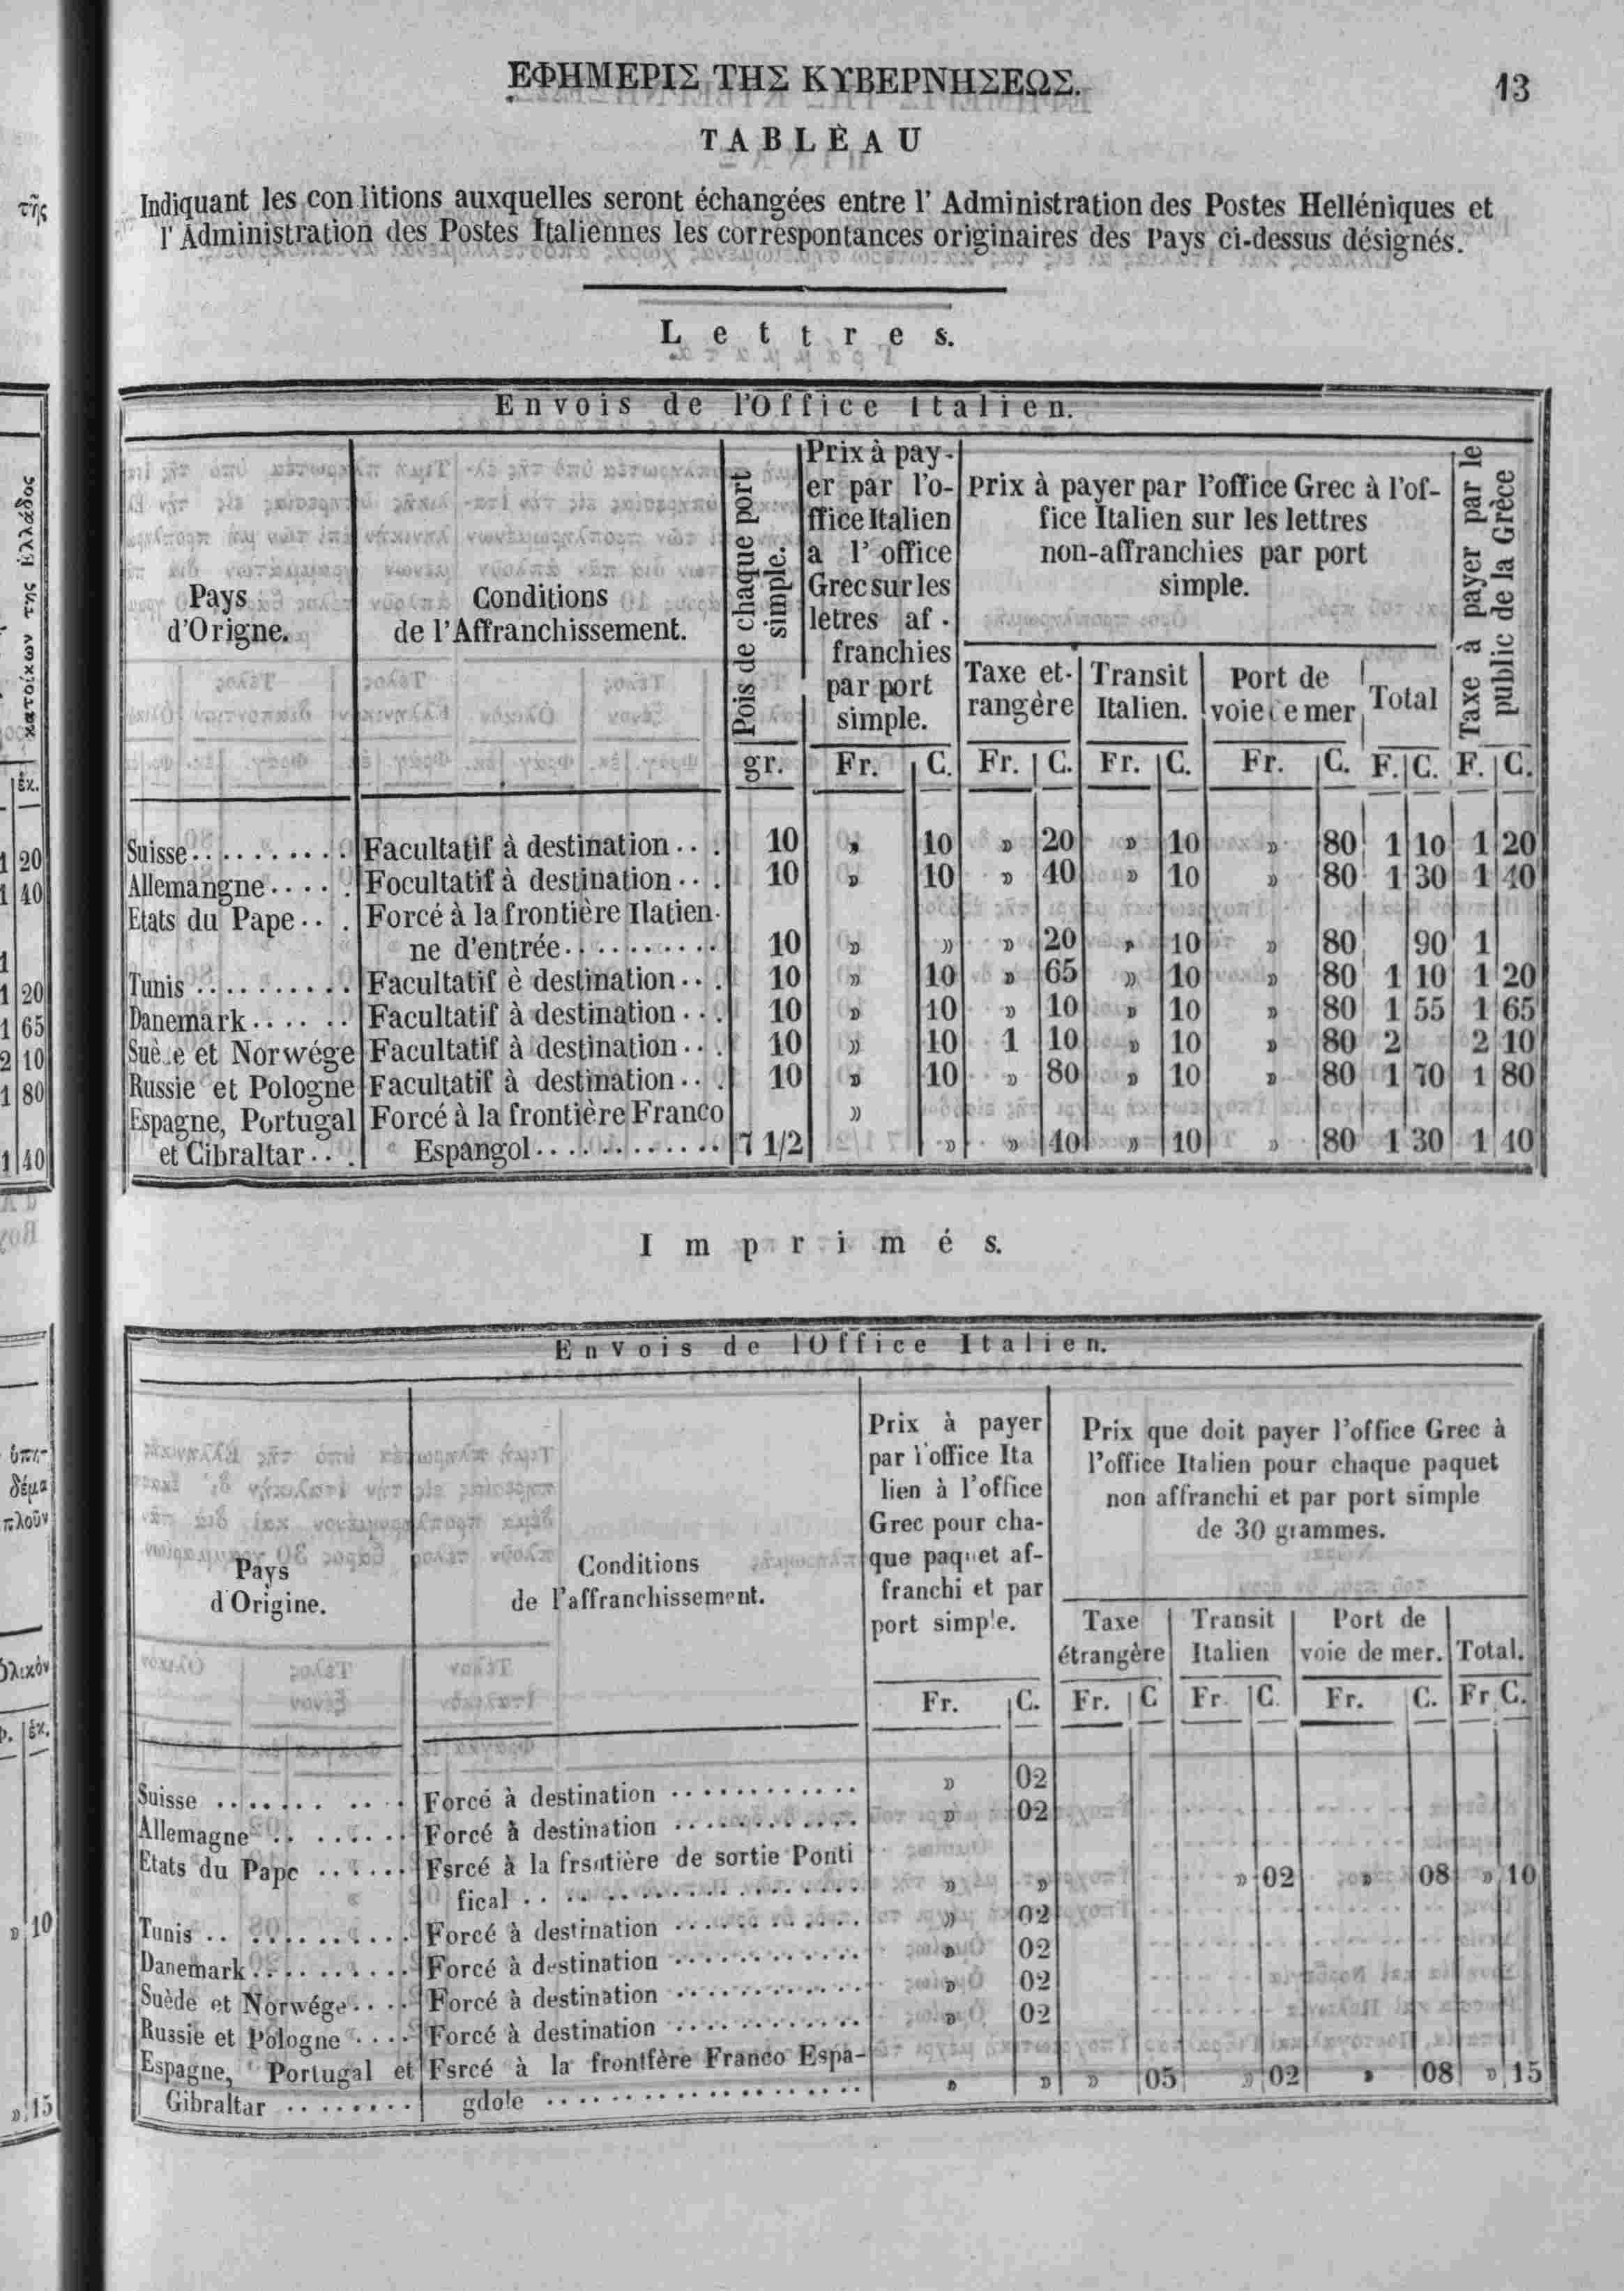 ΕΦΗΜΕΡΙΣ ΤΗΣ ΚΥΒΕΡΝΗΣΕΩΣ.
13
TABLÈAU
Indiquant les con litions auxquelles seront échangées entre l' Administration des Postes Helléniques et
l' Administration des Postes Italiennes les correspontances originaires des Pays ci-dessus désignés.
Lettres.
Envois de l'Office Italien.
Pays
d'Origne.
Conditions
de l'Affranchissement.
Pois de chaque port
simple.
Prix à pay-
er par l'o-
ffice Italien
a l' office
Grec sur les
letres af-
franchies
par port
simple.
Prix à payer par l'office Grec à l'of-
fice Italien sur les lettres
non-affranchies par port
simple.
Taxe et-
rangère
Transit
Italien.
Port de
voie e mer
Total
Taxe à payer par le
public de la Grèce
gr. Fr. C. Fr. C. Fr. C. Fr. C. F. C. F. C.
Suisse.......... Facultatif à destination... 10 » 10 » 20 » 10 » 80 1 10 1 20
Allemangne..... Focultatif à destination... 10 » 10 » 40 » 10 » 80 1 30 1 40
Etats du Pape... Forcé à la frontière Ilatien-
ne d'entrée.......... 10 » » » 20 » 10 » 80 90 1
Tunis .......... Facultatif è destination... 10 » 10 » 65 » 10 » 80 1 10 1 20
Danemark...... Facultatif à destination... 10 » 10 » 10 » 10 » 80 1 55 1 65
Suè e et Norwége Facultatif à destination... 10 » 10 1 10 » 10 » 80 2 2 10
Russie et Pologne Facultatif à destination... 10 » 10 » 80 » 10 » 80 1 70 1 80
Espagne, Portugal Forcé à la frontière Franco »
et Cibraltar... Espangol............ 7 1/2 » » 40 » 10 » 80 1 30 1 40
Imprimés.
Envois de lOffice Italien.
Pays
d'Origine.
Conditions
de l'affranchissement.
Prix à payer
par l'office Ita
lien à l'office
Grec pour cha-
que paquet af-
franchi et par
port simple.
Prix que doit payer l'office Grec à
l'office Italien pour chaque paquet
non affranchi et par port simple
de 30 grammes.
Taxe
étrangère
Transit
Italien
Port de
voie de mer.
Total.
Fr. C. Fr. C Fr. C. Fr. C. Fr C.
Suisse .......... Forcé à destination ............ » 02
Allemagne ........ Forcé à destination ............ » 02
Etats du Pape ...... Fsrcé à la frsntière de sortie Ponti
fical .................. » » » 02 » 08 » 10
Tunis ............ Forcé à destination ............ » 02
Danemark.......... Forcé à destination ............ » 02
Suède et Norwége.... Forcé à destination ............ » 02
Russie et Pologne .... Forcé à destination ............ » 02
Espagne, Portugal et Fsrcé à la frontfère Franco Espa-
Gibraltar ........ gdole .................. » » » 05 » 02 » 08 » 15
τῆς
κατοίκων της Ἑλλάδος
ἑκ.
1 20
1 40
1
1 20
1 65
2 10
1 80
1 40
ὑπη-
δέμα
πλοῦν
ὁλικόν
ἑκ.
» 10
» 15